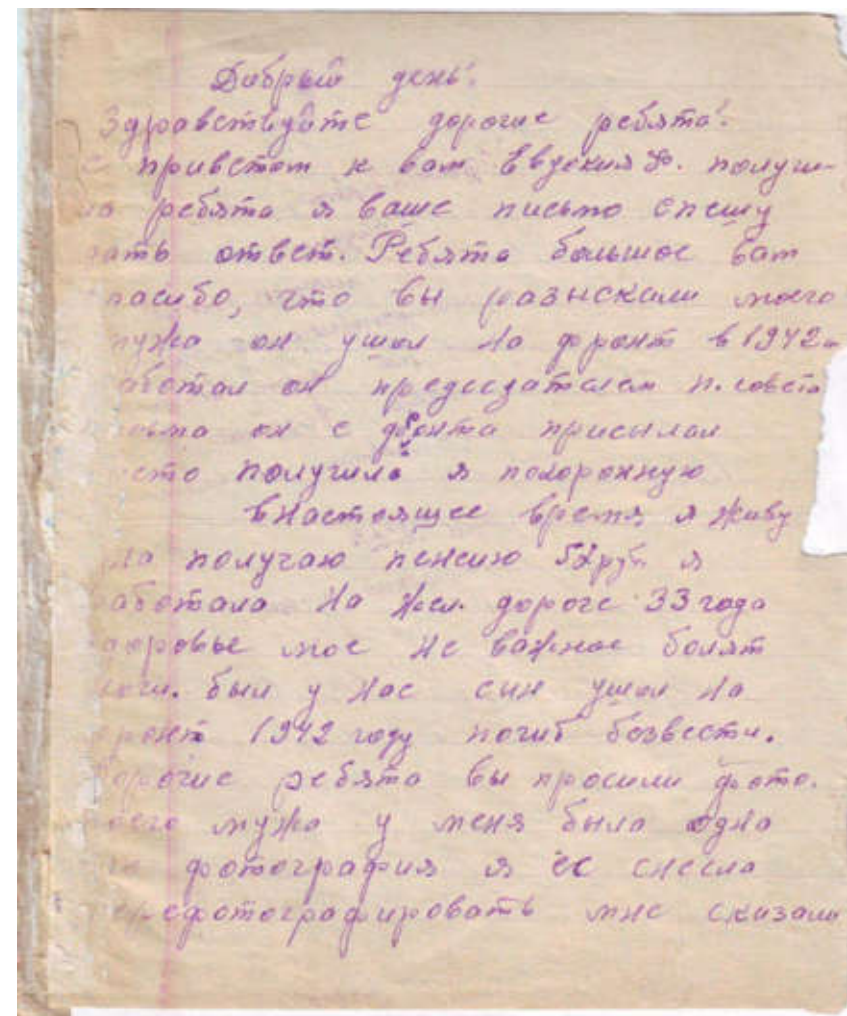 Добрый день!
Здравствуйте дорогие ребята!
С приветом к вам Евдокия Ф. получи-
ла ребята я ваше письмо спешу
дать ответ. Ребята большое вам
спасибо, что вы разыскали моего
мужа он ушел на фронт в 1942г
работал он председателем п. совета
письма он с фронта присылал
часто получила я похоронную
внастоящее время я живу
одна получаю пенсию 52руб я
работала на жел. дороге 33 года
здоровье мое не важное болят
ноги. был у нас сын ушел на
фронт 1942 году погиб безвести.
Дорогие ребята вы просили фото.
моего мужа у меня была одна
фотография я ее снесла
перефотографировать мне сказали